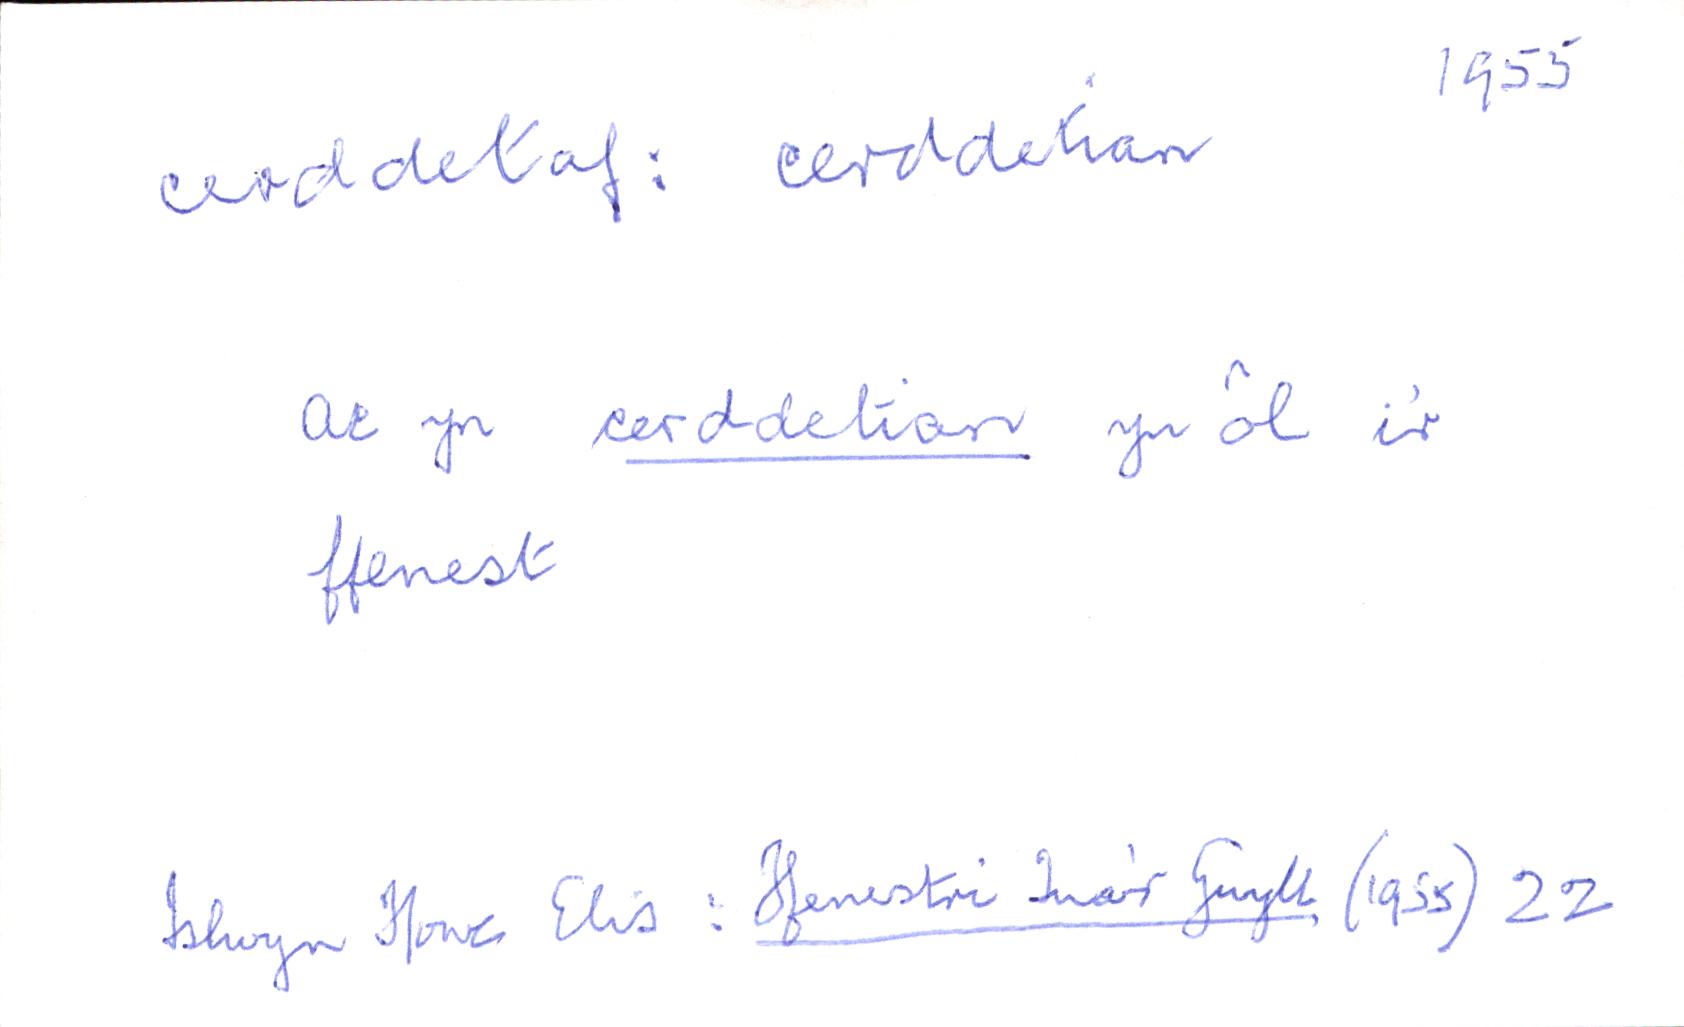 1955
cerddetaf: cerddetian
ac yn cerddetian yn ôl i'r
ffenest
Islwyn Ffowc Elis: Ffenestri Tua'r Gwyll (1955) 22